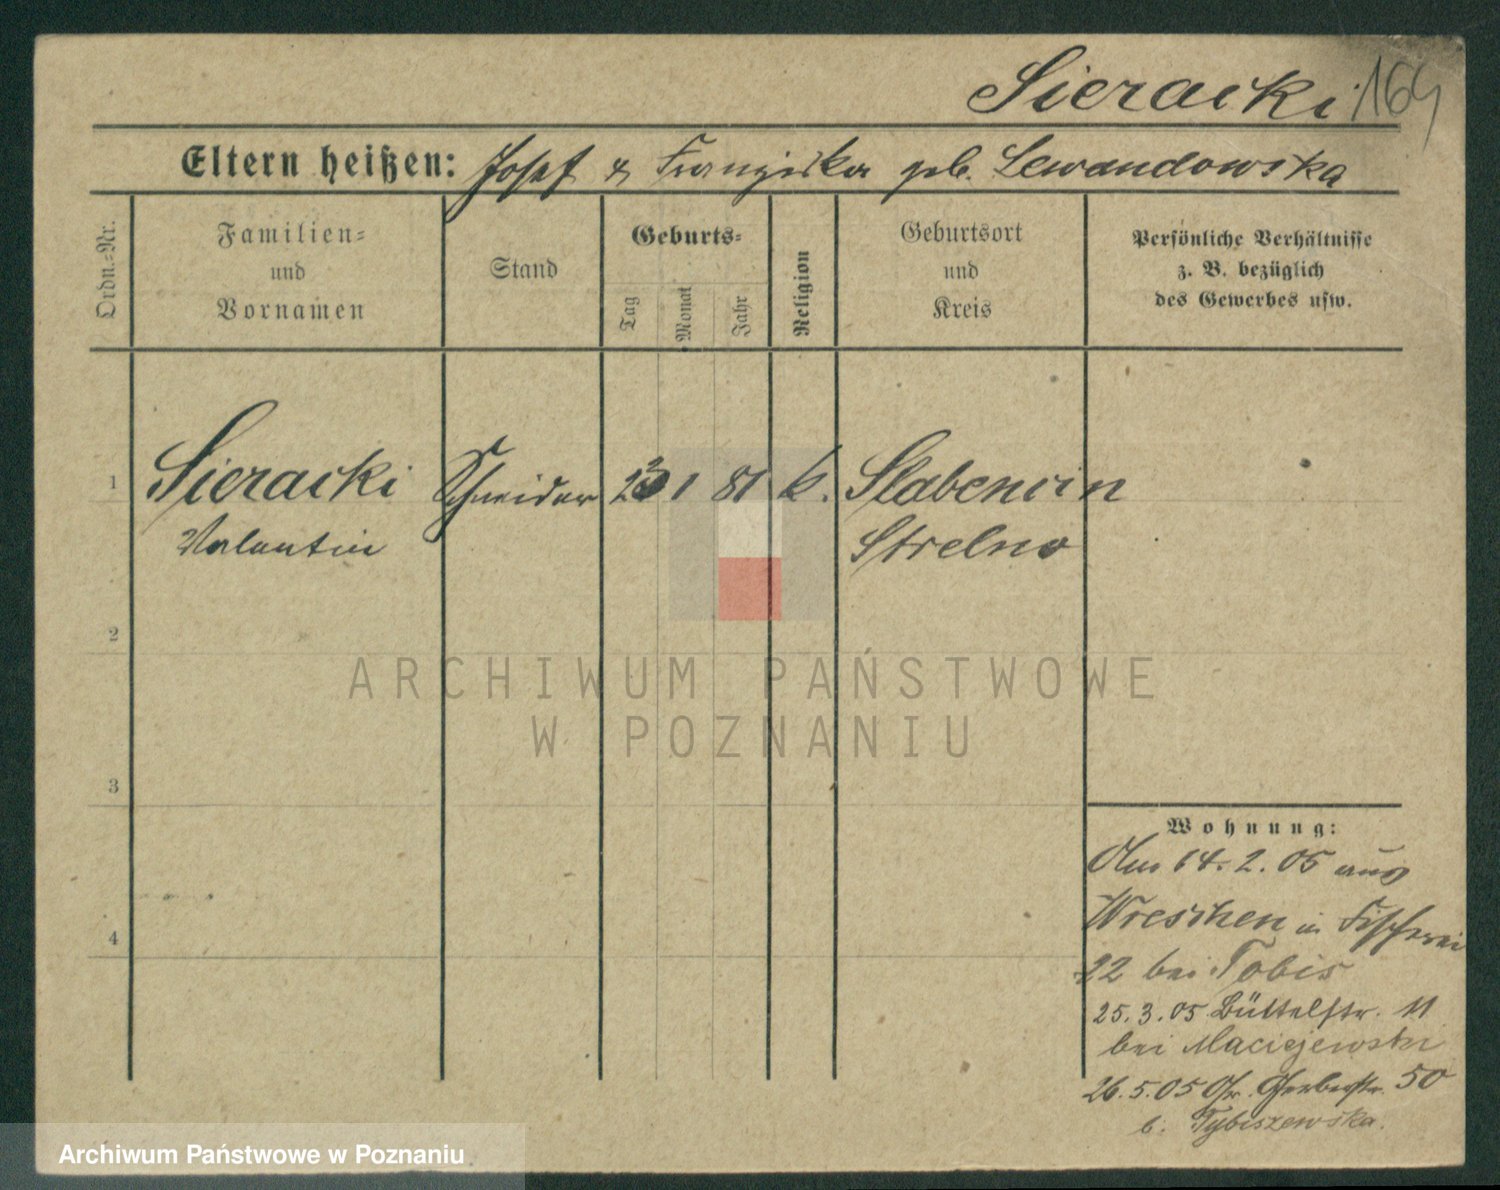 Sieracki 164
Eltern heißen: Josef & Franziska geb. Lewandowska
Ordn.-Nr.
Familien-
und
Vornamen
Stand
Geburts-
Tag
Monat
Jahr
Religion
Geburtsort
und
Kreis
Persönliche Verhältnisse
z. B. bezüglich
des Gewerbes usw.
1 Sieracki Schneider 23 1 81 k. Slabencin
Valentin Strelno
2
3
4
ARCHIWUM PAŃSTWOWE
W POZNANIU
Wohnung:
Am 14. 2. 05 aus
Wreschen in Fischerei
22 bei Tobis
25. 3. 05 Büttelstr. 11
bei Maciejewski
26. 5. 05 Gr. Gerberstr. 50
b. Tybiszewska.
Archiwum Państwowe w Poznaniu